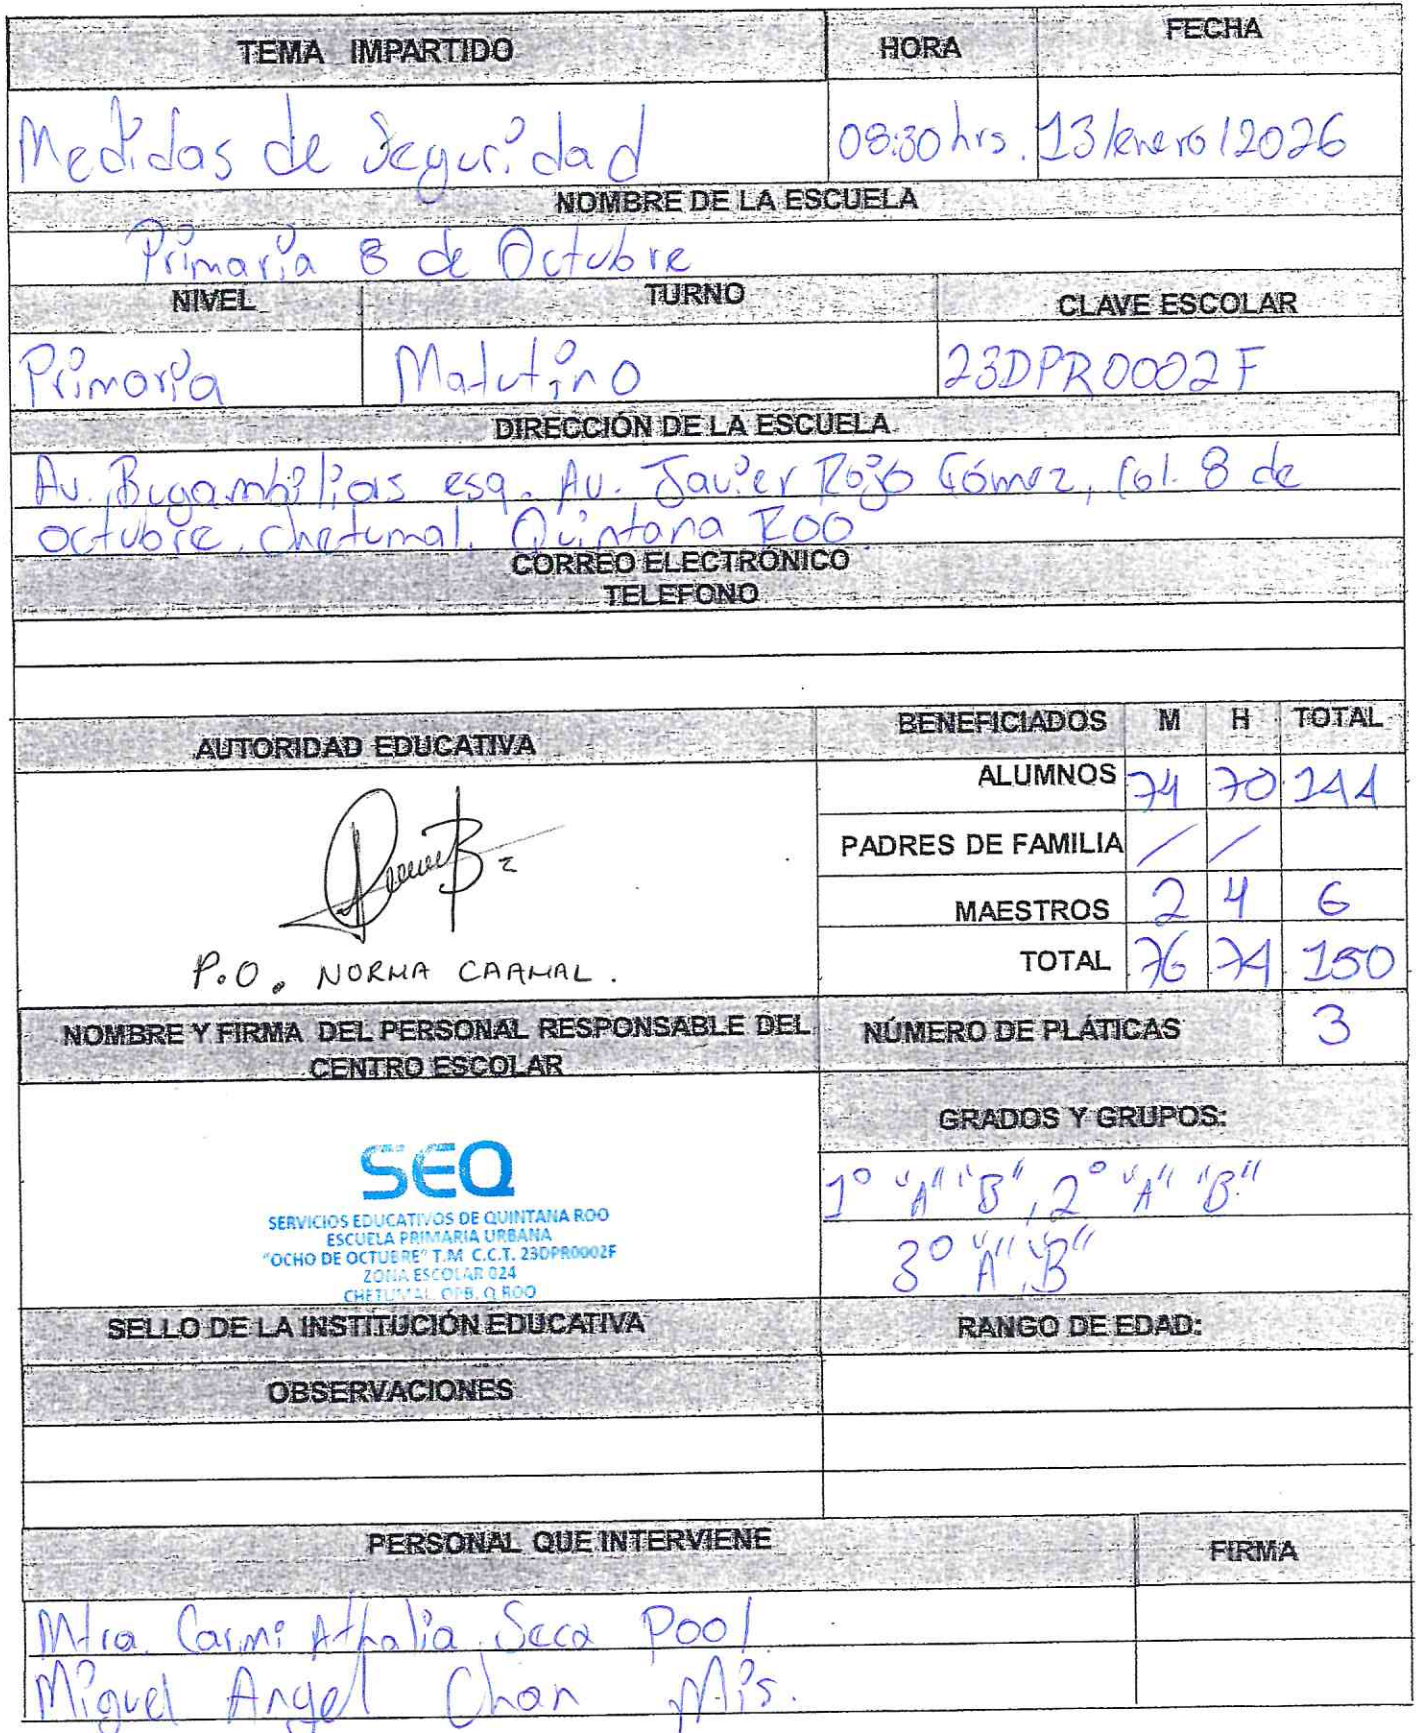 TEMA IMPARTIDO HORA FECHA
Medidas de Seguridad 08:30 hrs. 13/enero/2026
NOMBRE DE LA ESCUELA
Primaria 8 de Octubre
NIVEL TURNO CLAVE ESCOLAR
Primaria Matutino 23DPR0002F
DIRECCIÓN DE LA ESCUELA
Av. Bugambilias esq. Av. Javier Rojo Gómez, Col. 8 de
octubre, Chetumal, Quintana Roo
CORREO ELECTRÓNICO
TELEFONO
AUTORIDAD EDUCATIVA BENEFICIADOS M H TOTAL
ALUMNOS 74 70 144
PADRES DE FAMILIA / /
MAESTROS 2 4 6
P.O. NORMA CAAMAL. TOTAL 76 74 150
NOMBRE Y FIRMA DEL PERSONAL RESPONSABLE DEL
CENTRO ESCOLAR
NÚMERO DE PLÁTICAS 3
GRADOS Y GRUPOS:
1° "A" "B", 2° "A" "B"
3° "A", "B"
SEQ
SERVICIOS EDUCATIVOS DE QUINTANA ROO
ESCUELA PRIMARIA URBANA
"OCHO DE OCTUBRE" T.M C.C.T. 23DPR0002F
ZONA ESCOLAR 024
CHETUMAL, OPB, Q.ROO
SELLO DE LA INSTITUCIÓN EDUCATIVA RANGO DE EDAD:
OBSERVACIONES
PERSONAL QUE INTERVIENE FIRMA
Mtra. Carmi Athalia Pool
Miguel Angel Chan Mis.